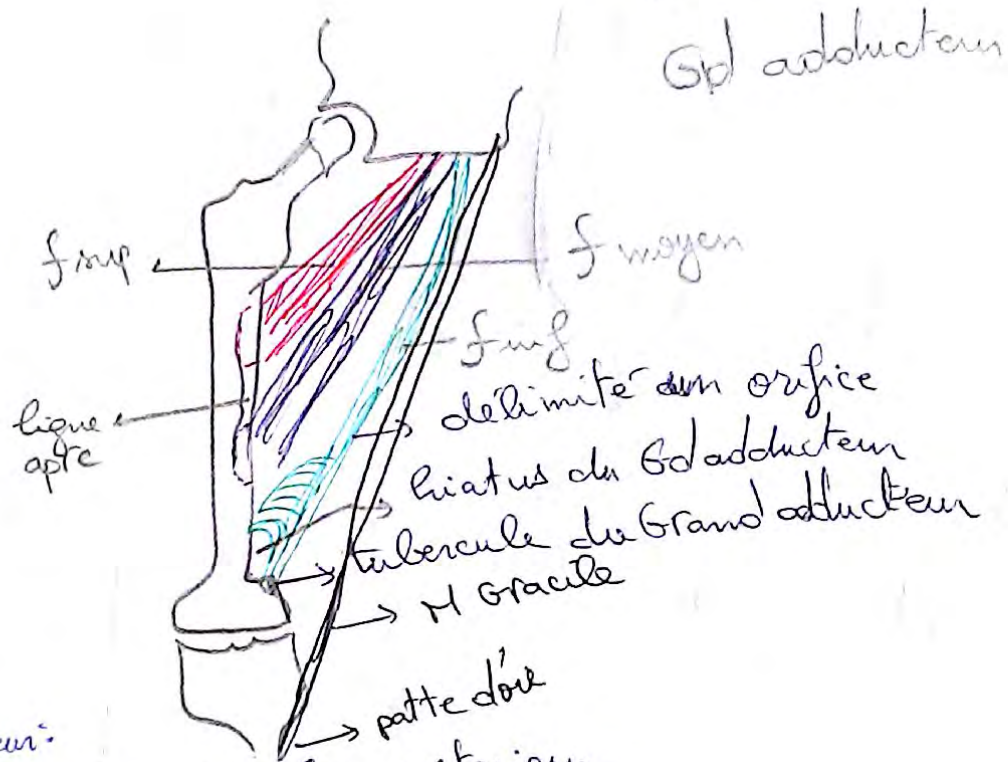 Gd adducteur
f sup
f moyen
f inf
délimité un orifice
ligne
apre
hiatus du Gd adducteur
tubercule du Grand adducteur
M Gracile
patte d'oie